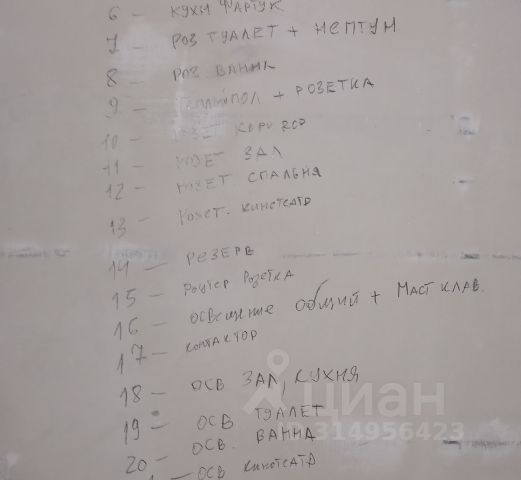 6 - КУХН ФАРТУК
7 - РОЗ ТУАЛЕТ + НЕПТУН
8 - РОЗ ВАННА
9 - ПОЛ + РОЗЕТКА
10 -
11 - РОЗЕТ ЗАЛ
12 - РОЗЕТ СПАЛЬНЯ
13 - Розет. КИНОТЕАТР
14 - РЕЗЕРВ
15 - РОУТЕР РОЗЕТКА
16 - ОСВЕЩЕНИЕ ОБЩИЙ + МАСТ КЛАВ.
17 - КОНТАКТОР
18 - ОСВ ЗАЛ, КУХНЯ
19 - ОСВ ТУАЛЕТ
20 - ОСВ. ВАННА
- ОСВ КИНОТЕАТР
циан
ID 314956423